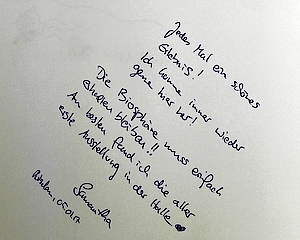 Jedes Mal ein schönes
Erlebnis!
Ich komme immer wieder
gerne hier her!
Die Biosphäre muss einfach
erhalten bleiben!!
Am besten fand ich die aller
erste Ausstellung in der Halle
Samantha